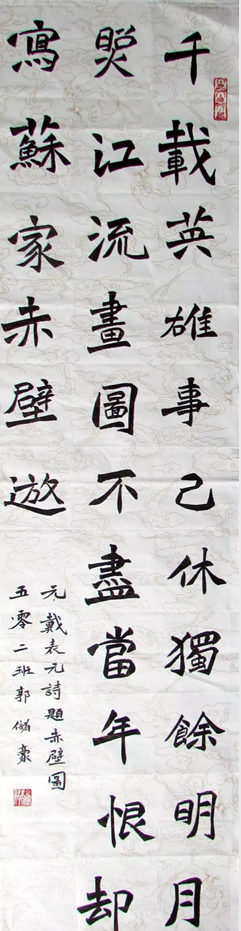 千載英雄事已休獨餘明月
照江流畫圖不盡當年恨却
寫蘇家赤壁遊
元戴表元詩題赤壁圖
五零二班郭豪